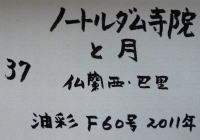 ノートルダム寺院
と月
37
仏蘭西・巴里
油彩 F60号 2011年